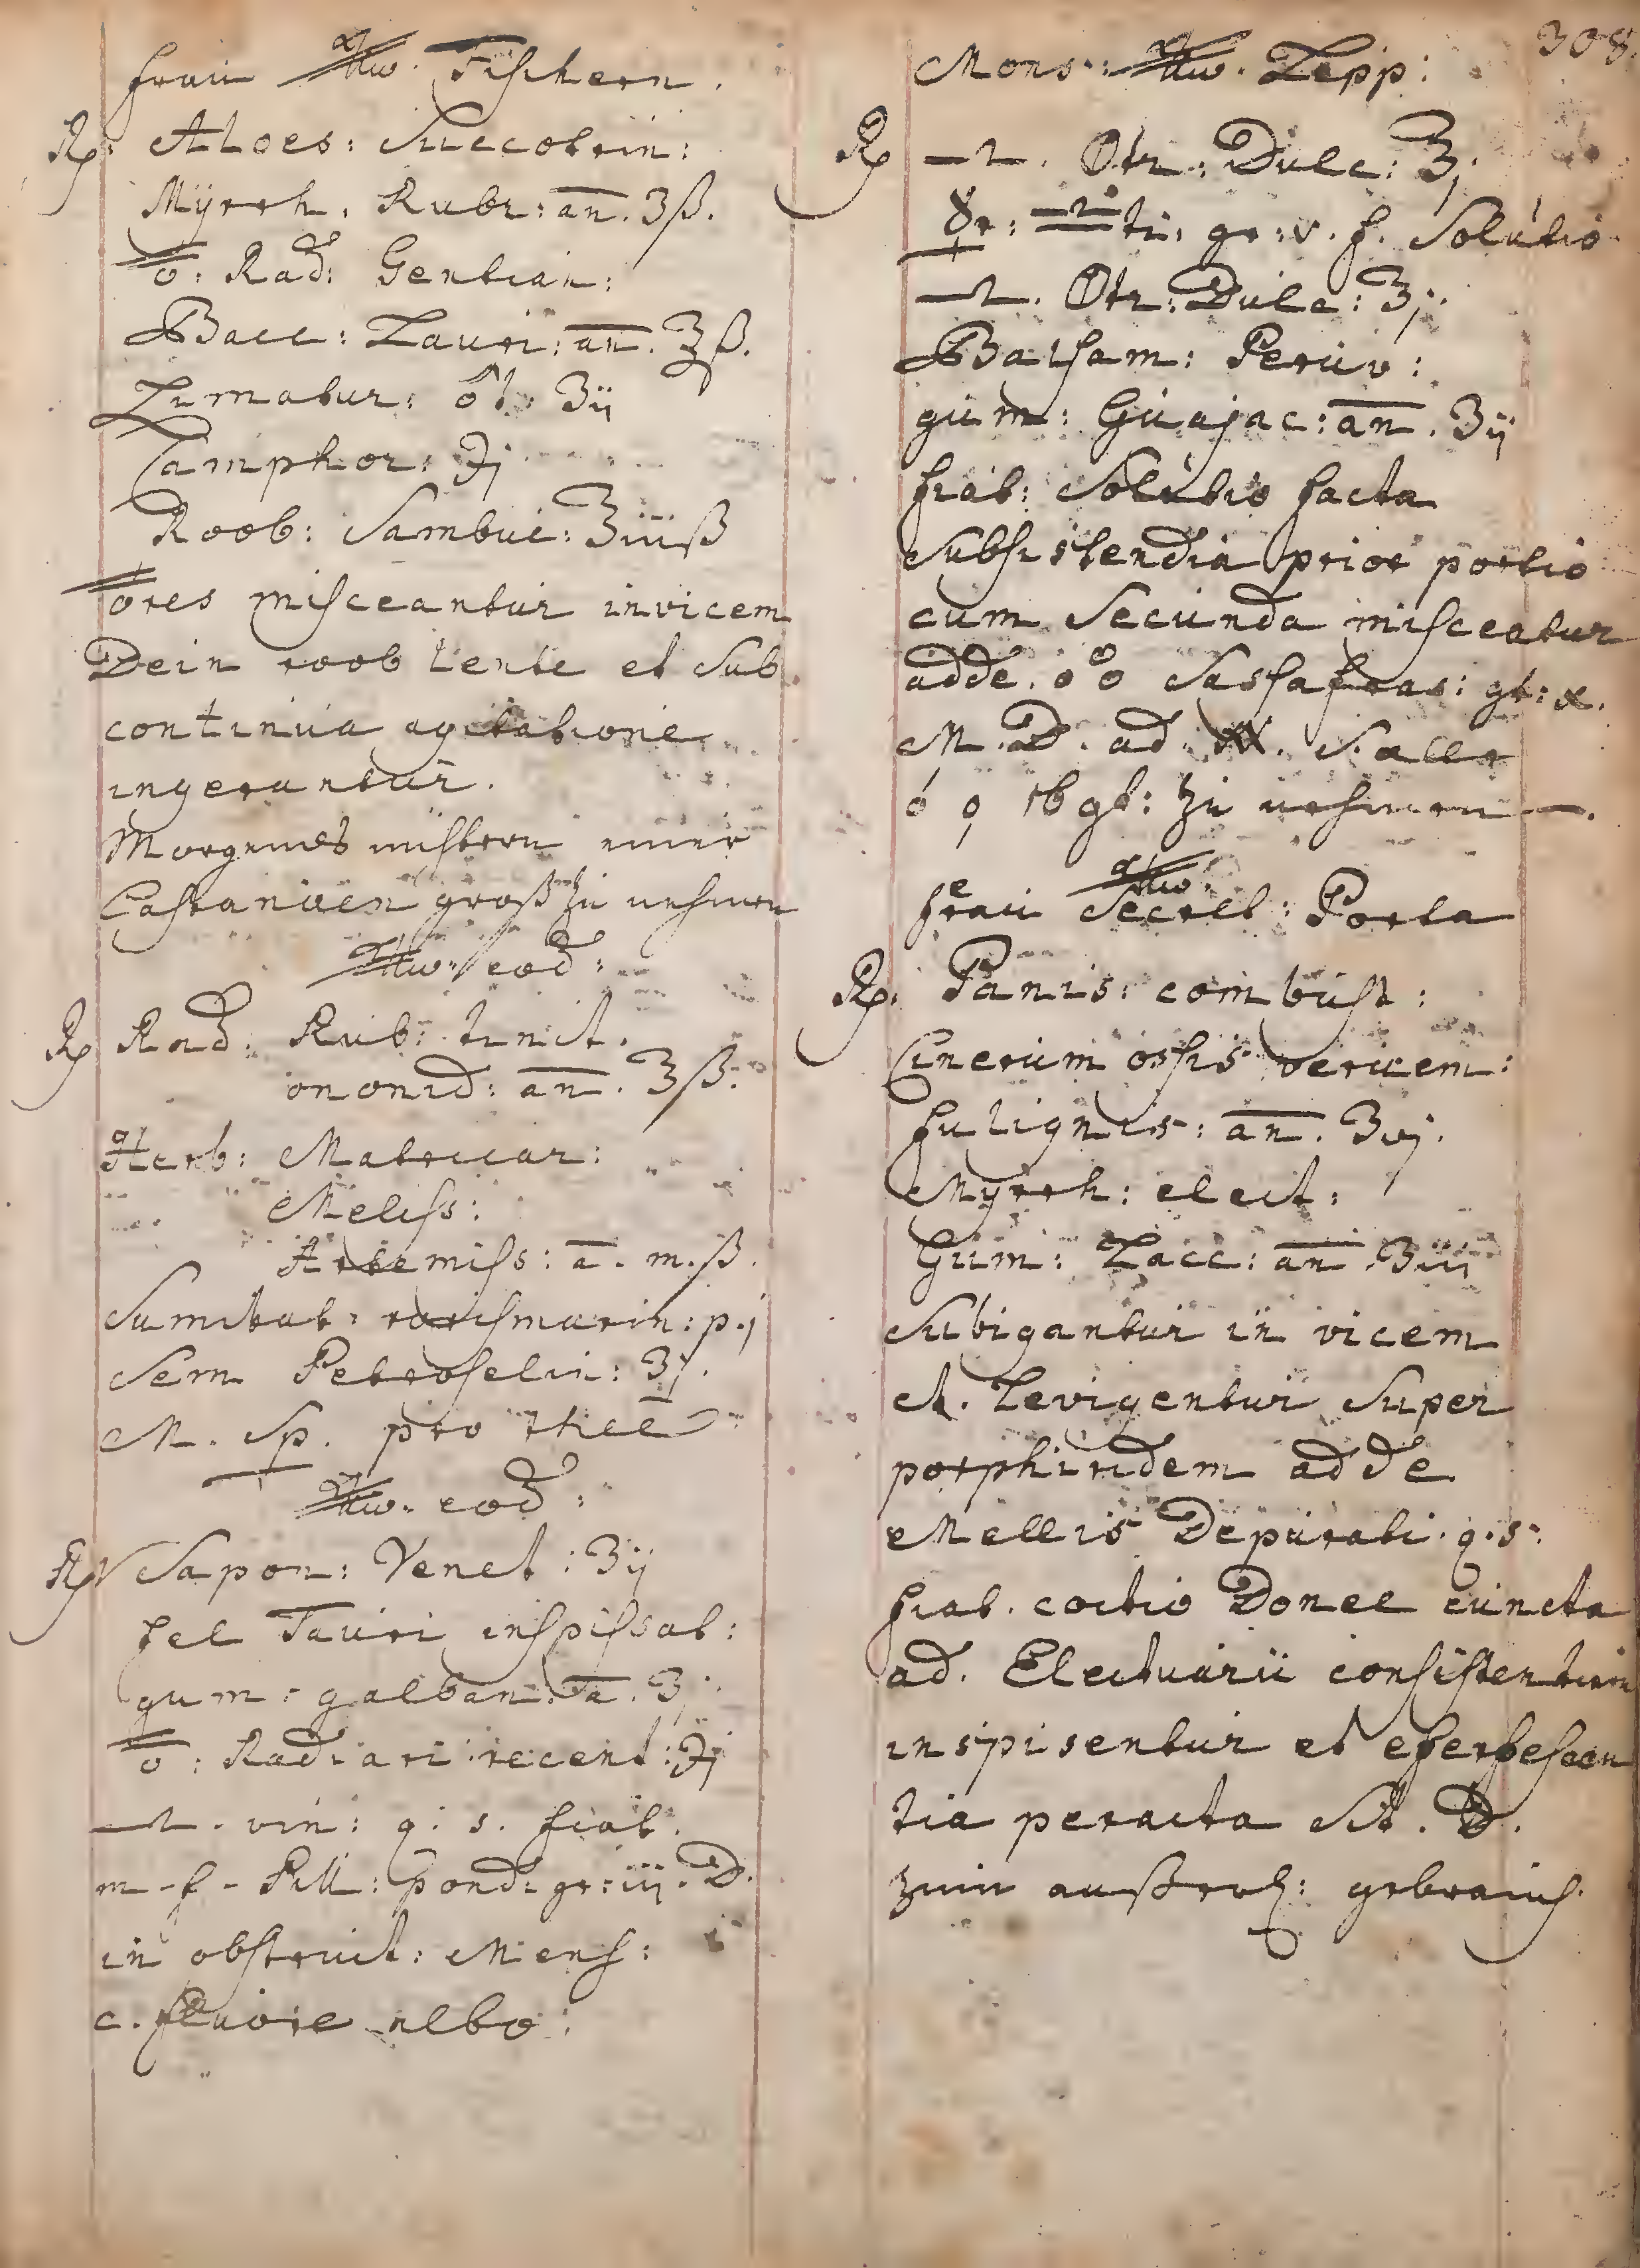 frau Fischern.
Rp: Aloes: Succotrin:
Myrrh. Rubr: an. ʒß.
Rad: Gentian:
Bacc: Lauri: an. ℥ß.
Limatur: ♂t. ʒij
Camphor: ℈j
Roob: Sambuc: ℥iiiß
misceantur invicem
Dein roob lente et sub
continua agitatione
ingerantur.
Morgends nüchtern einer
Castanien groß zu nehmen
eod:
Rp Rad: Rub: tinct.
ononid: an. ℥ß.
Herb: Matricar:
Meliss:
Artemiss: a. m.ß.
Sumitat: rorismarin: p.j
Sem Petroselin: ʒj.
M. Sp. pro thee
eod:
Rp Sapon: Venet: ʒij
fel Tauri inspissat:
gum: galban: a. ʒj.
Rad: ari recent: ℈j
vin: q: s. fiat.
m. f. Pill: pond: gr: iij. D.
in obstruct: Mens:
c. fluore albo:
308.
Mons: Zepp:
Rp Dulc: ℥j.
gr: v. f. Solutio
Dulc: ℥j.
Balsam: Peruv:
gum: Guajac: an. ʒij
fiat: Solutio facta
Subsistendia prior portio
cum Secunda misceatur
adde. Sassafras: gt: x.
M. D. ad
16 gt: zu nehmen.
frau Secret: Porta
Rp. Panis: combust:
Cinerum ossis
fuliginis: an. ʒvj.
Myrrh: elect:
Gum: Lacc: an. ʒiij
Subigantur in vicem
A. Levigentur Super
porphiridem adde
Mellis Depurati. q. s.
fiat. coctio Donec cuncta
ad. Electuarii consistentiam
inspisentur et eferfescen
tia peracta Sit. D.
zum äußerl: gebrauch